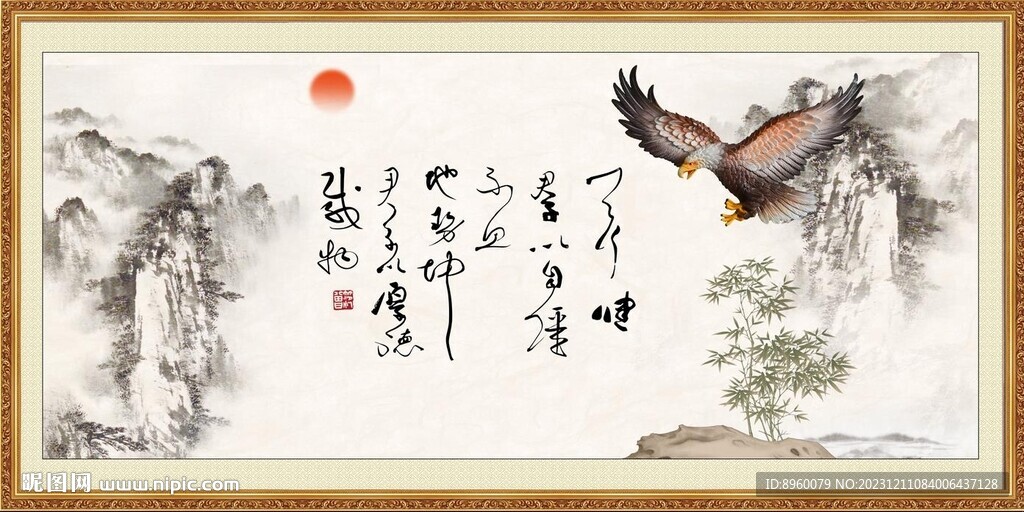 天行健
君子以自强
不息
地势坤
君子以厚德
载物
昵图网 www.nipic.com
ID:8960079 NO:20231211084006437128